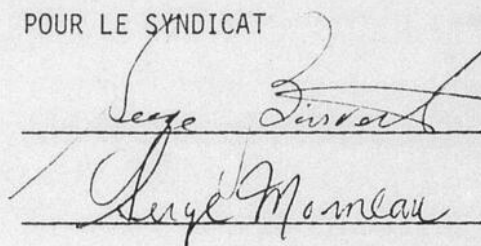 POUR LE SYNDICAT
Serge Boisvert
Serge Morneau